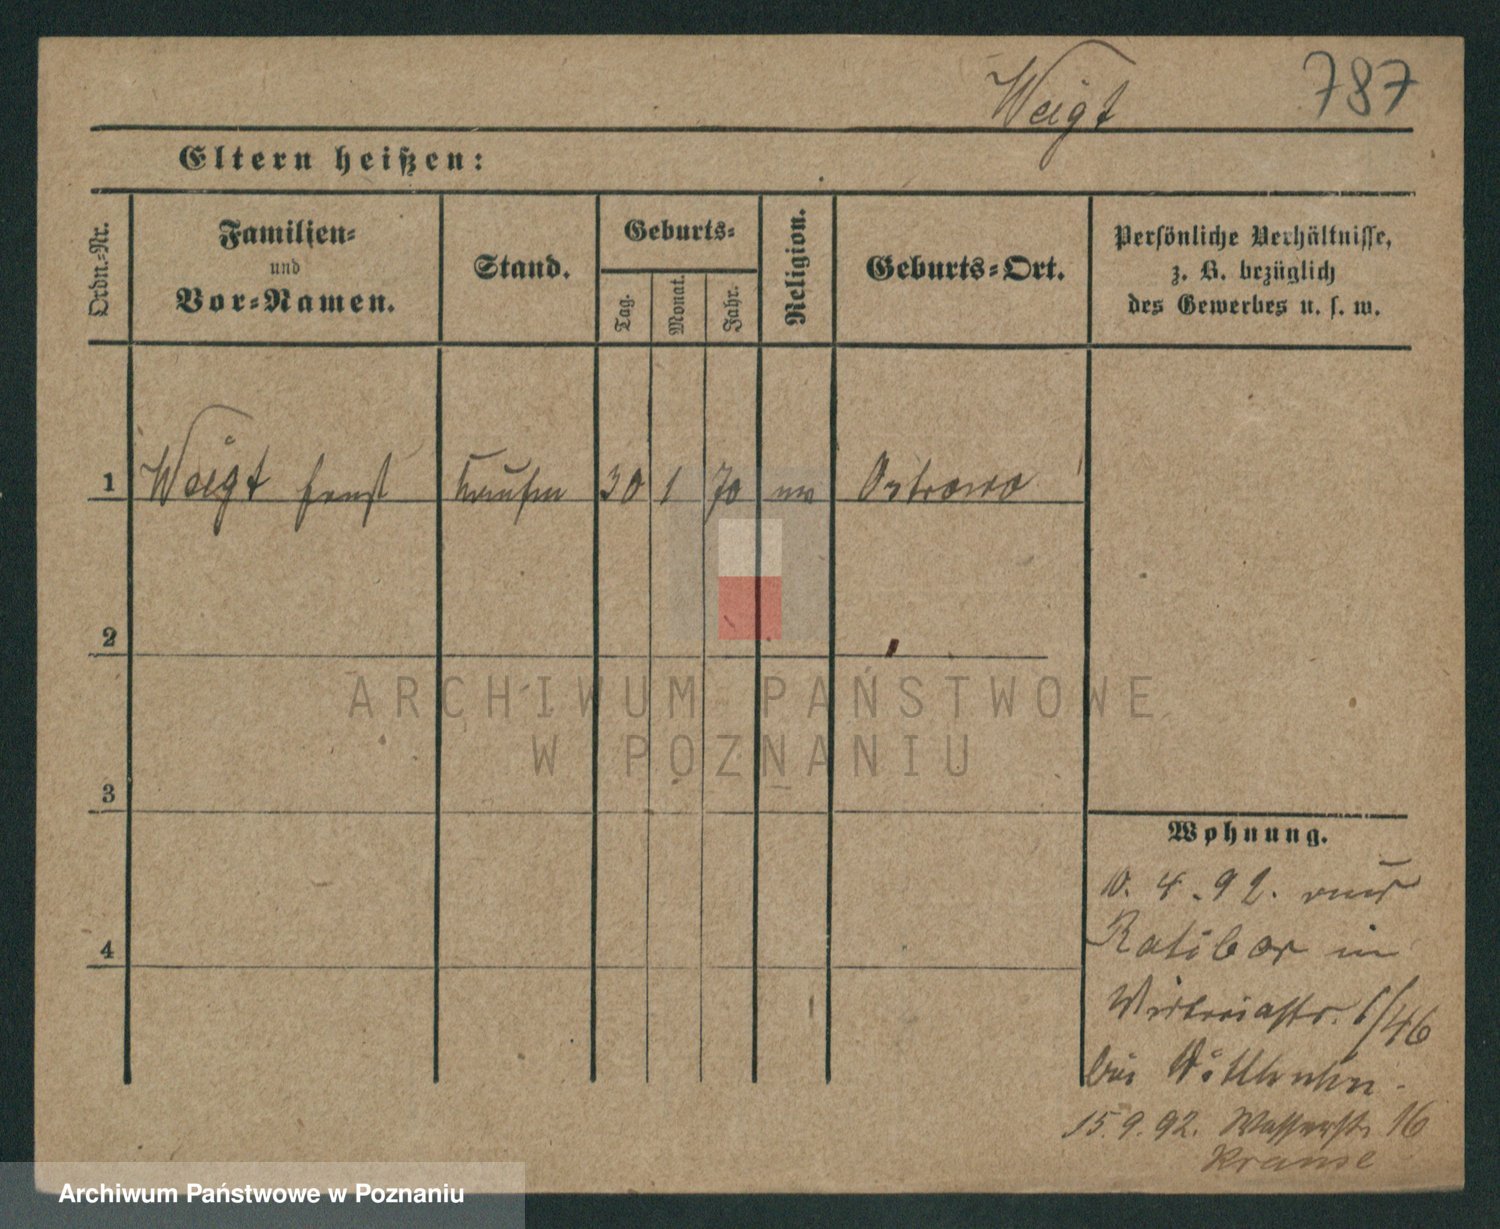 Weigt 787
Eltern heißen:
Ordn.-Nr.
Familien-
und
Vor-Namen.
Stand.
Geburts-
Tag.
Monat.
Jahr.
Religion.
Geburts-Ort.
Persönliche Verhältnisse,
z. B. bezüglich
des Gewerbes u. s. w.
1 Weigt Ernst Kaufm 30 1 70 ev Ostrowo
2
3
4
Wohnung.
10.4.92. aus
Ratibor in
6/46
bei
15.9.92. Wasserstr. 16
Krause
ARCHIWUM PAŃSTWOWE
W POZNANIU
Archiwum Państwowe w Poznaniu